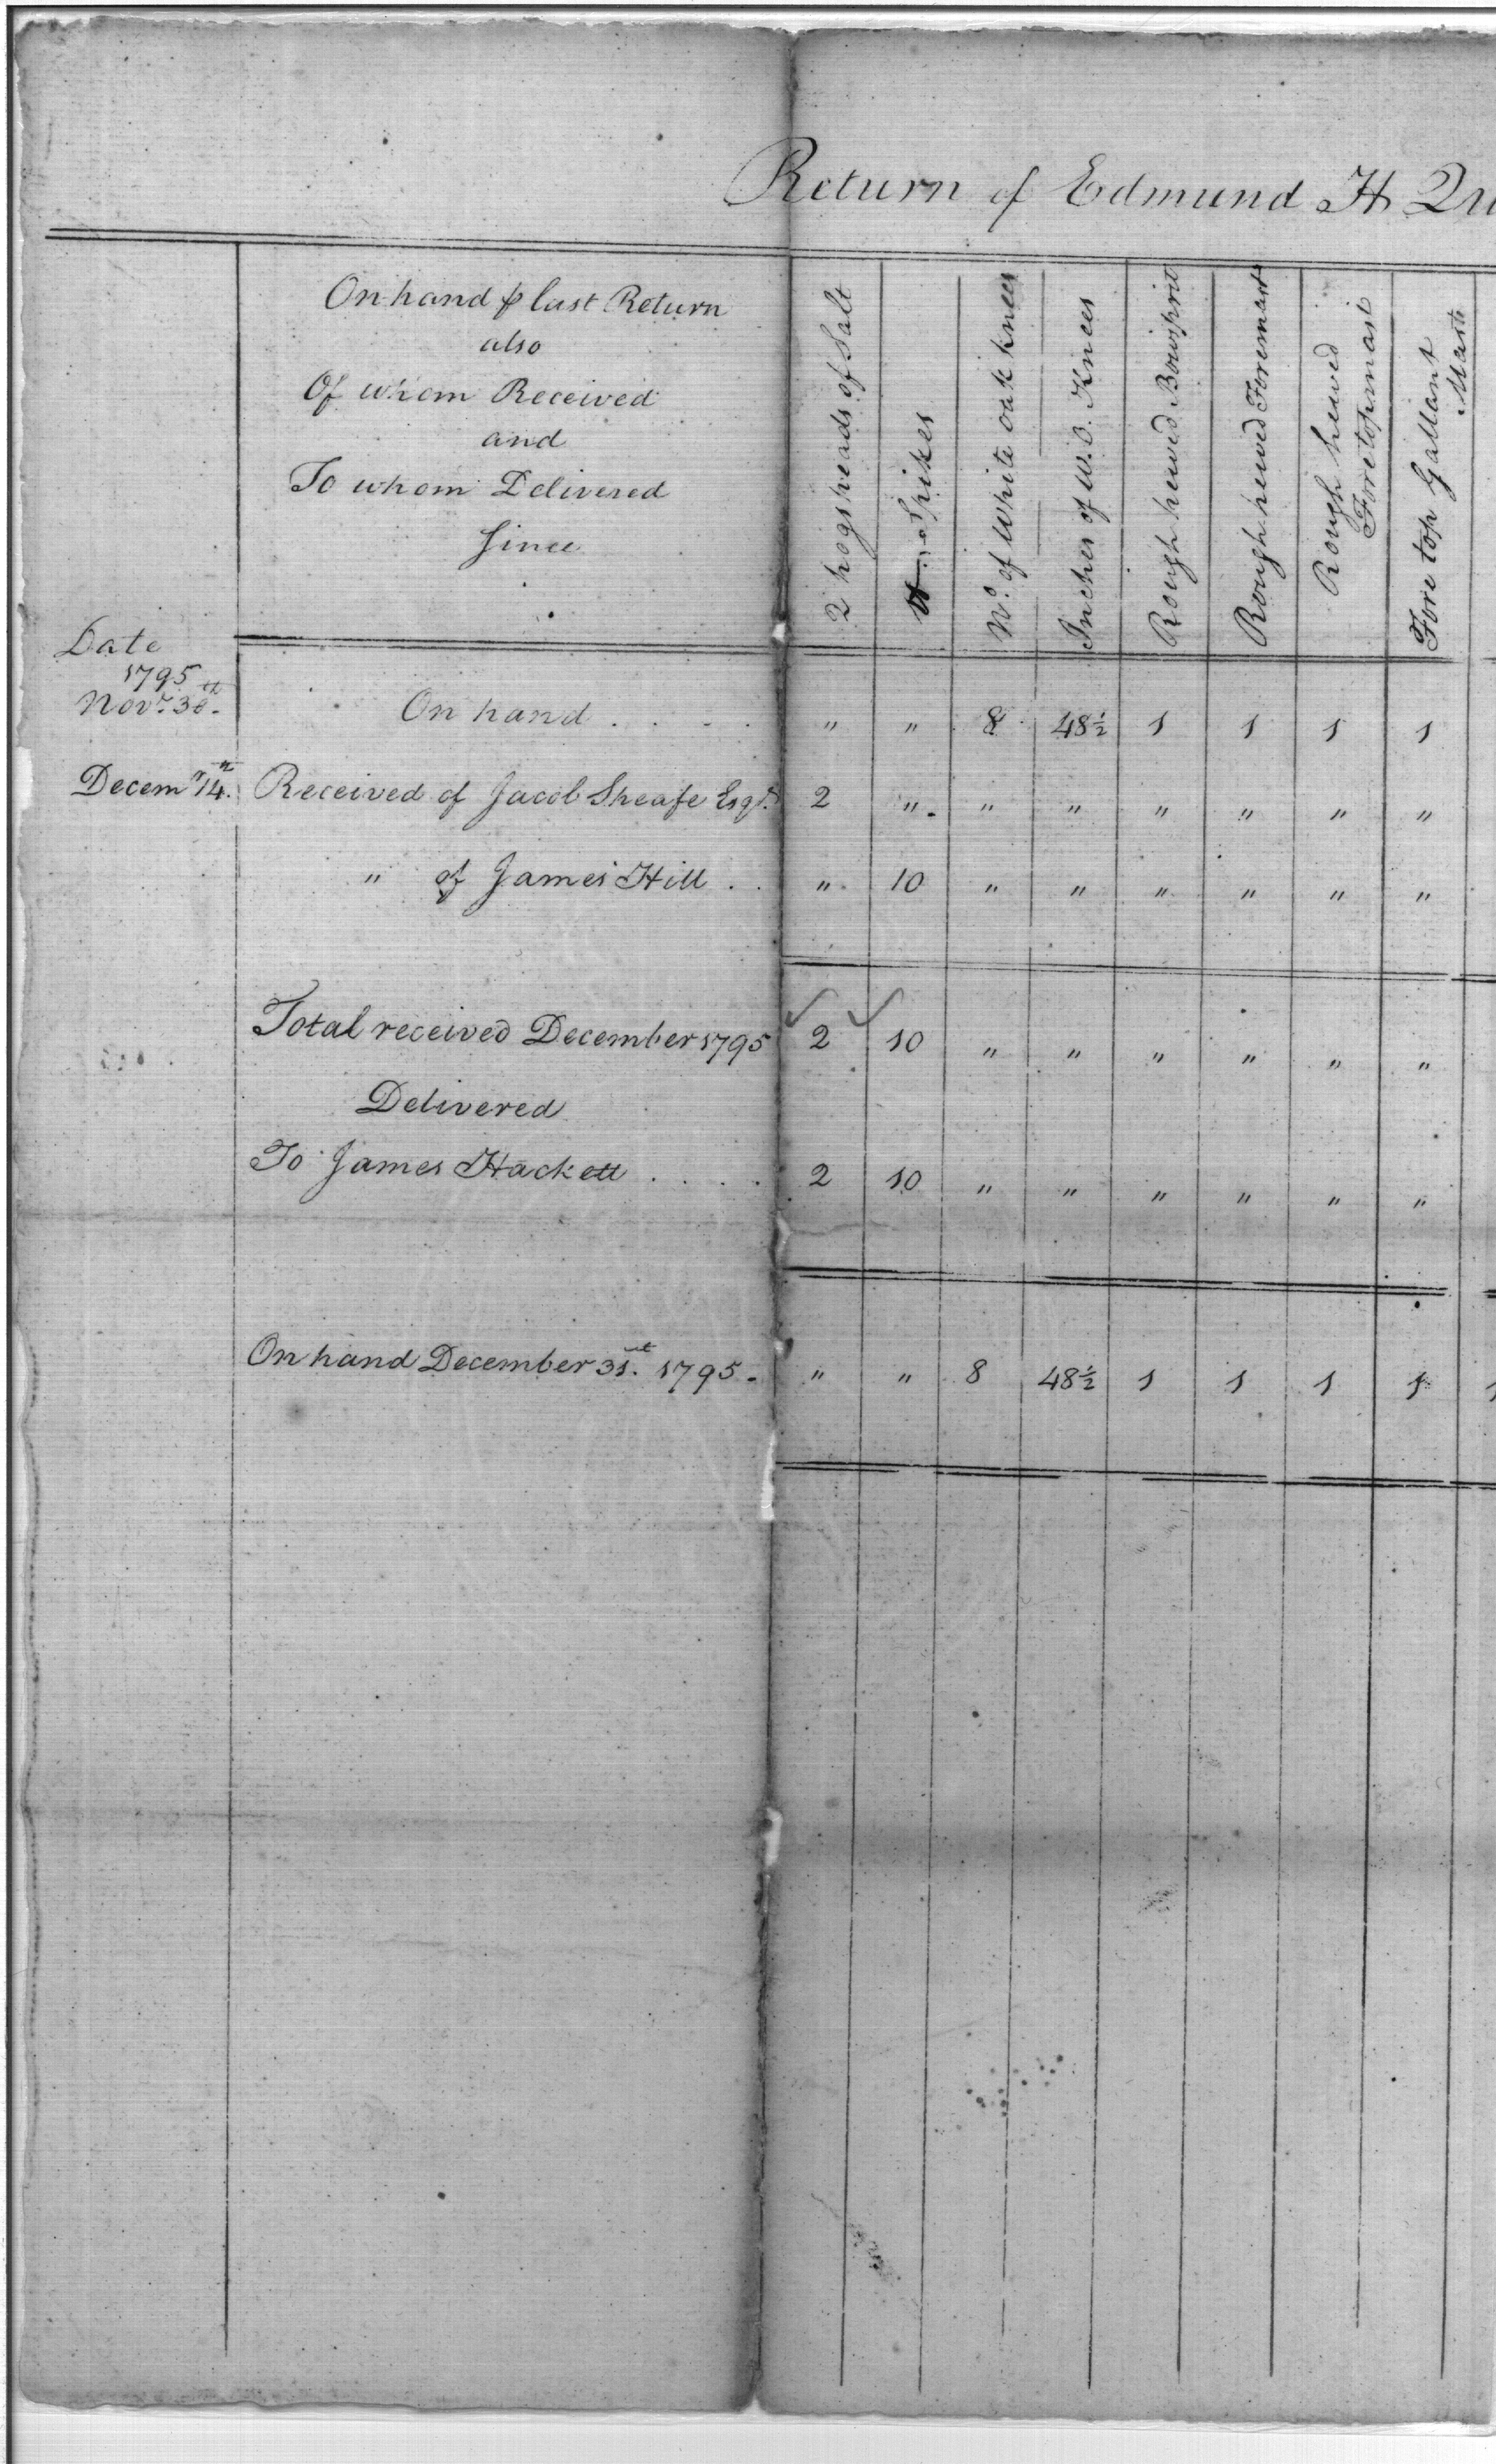 Return of Edmund H Qu
On hand ⅌ last Return
also
Of whom Received
and
To whom Delivered
Since
2 hogsheads of Salt
Spikes
No. of White oak knees
Inches of W.O. Knees
Rough hewed Bowsprit
Rough hewed Foremast
Rough hewed
Foretopmast
Fore top Gallant
Mast
Date
1795
Novr. 30th. On hand . . . . " " 8 48½ 1 1 1 1
Decemr 14th. Received of Jacob Sheafe Esqr. 2 " " " " " " "
" of James Hill . . " 10 " " " " " "
Total received December 1795 2 10 " " " " " "
Delivered
To James Hackett . . . . 2 10 " " " " " "
On hand December 31st. 1795. " " 8 48½ 1 1 1 1 1